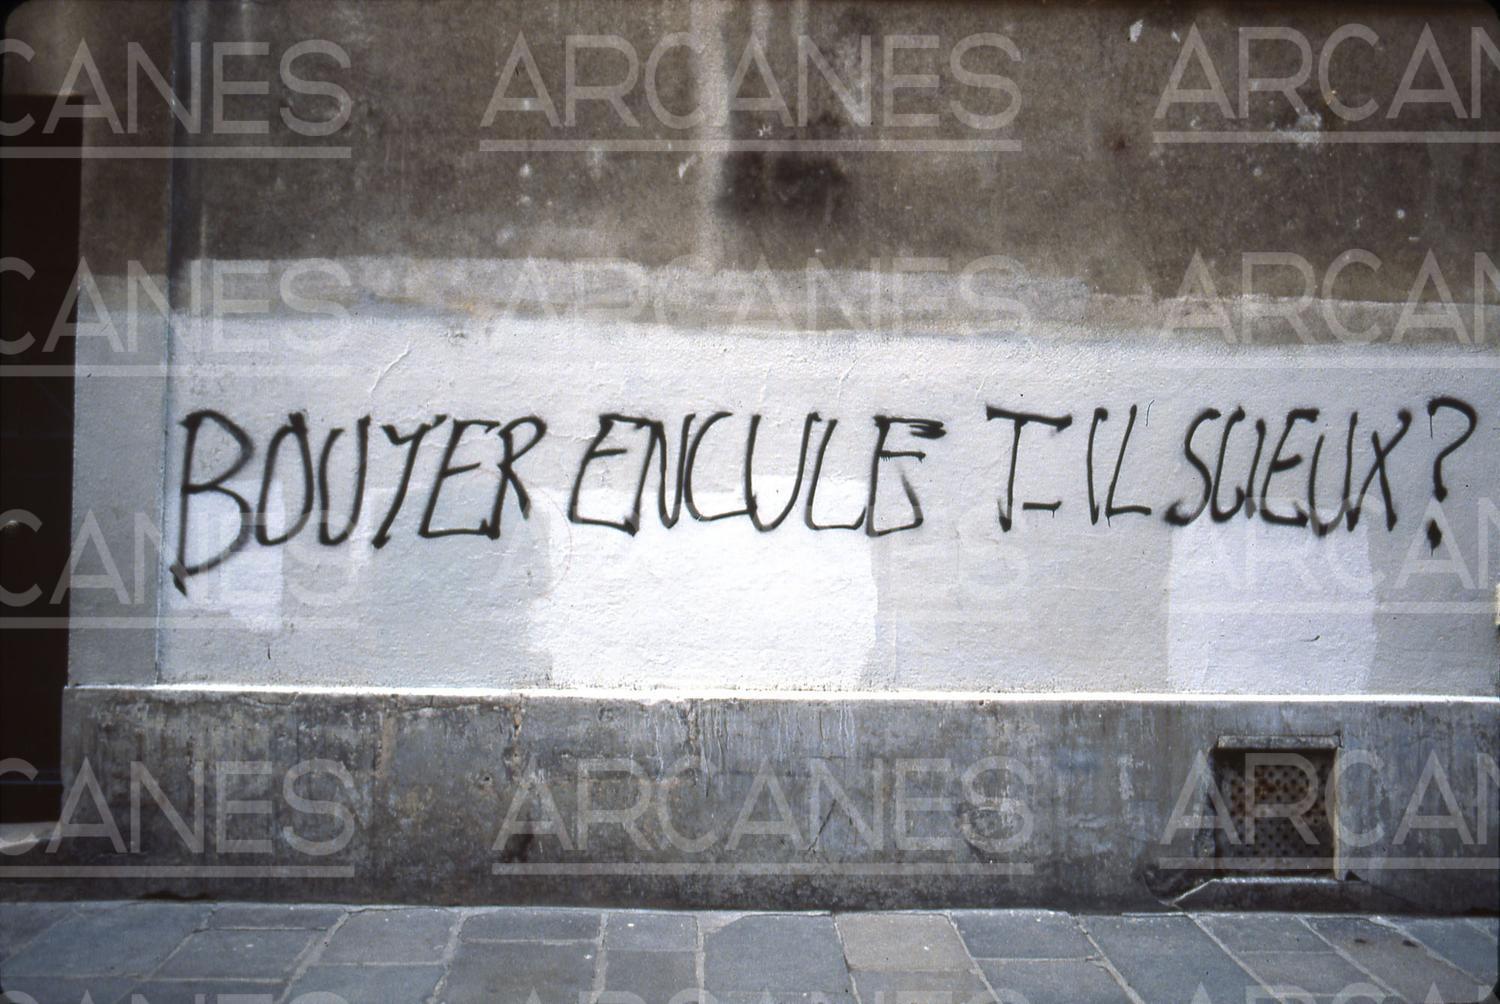 CANES ARCANES ARCAN
CANES ARCANES ARCAN
BOUYER ENCULE T-IL SCIEUX ?
CANES ARCANES ARCAN
CANES ARCANES ARCAN